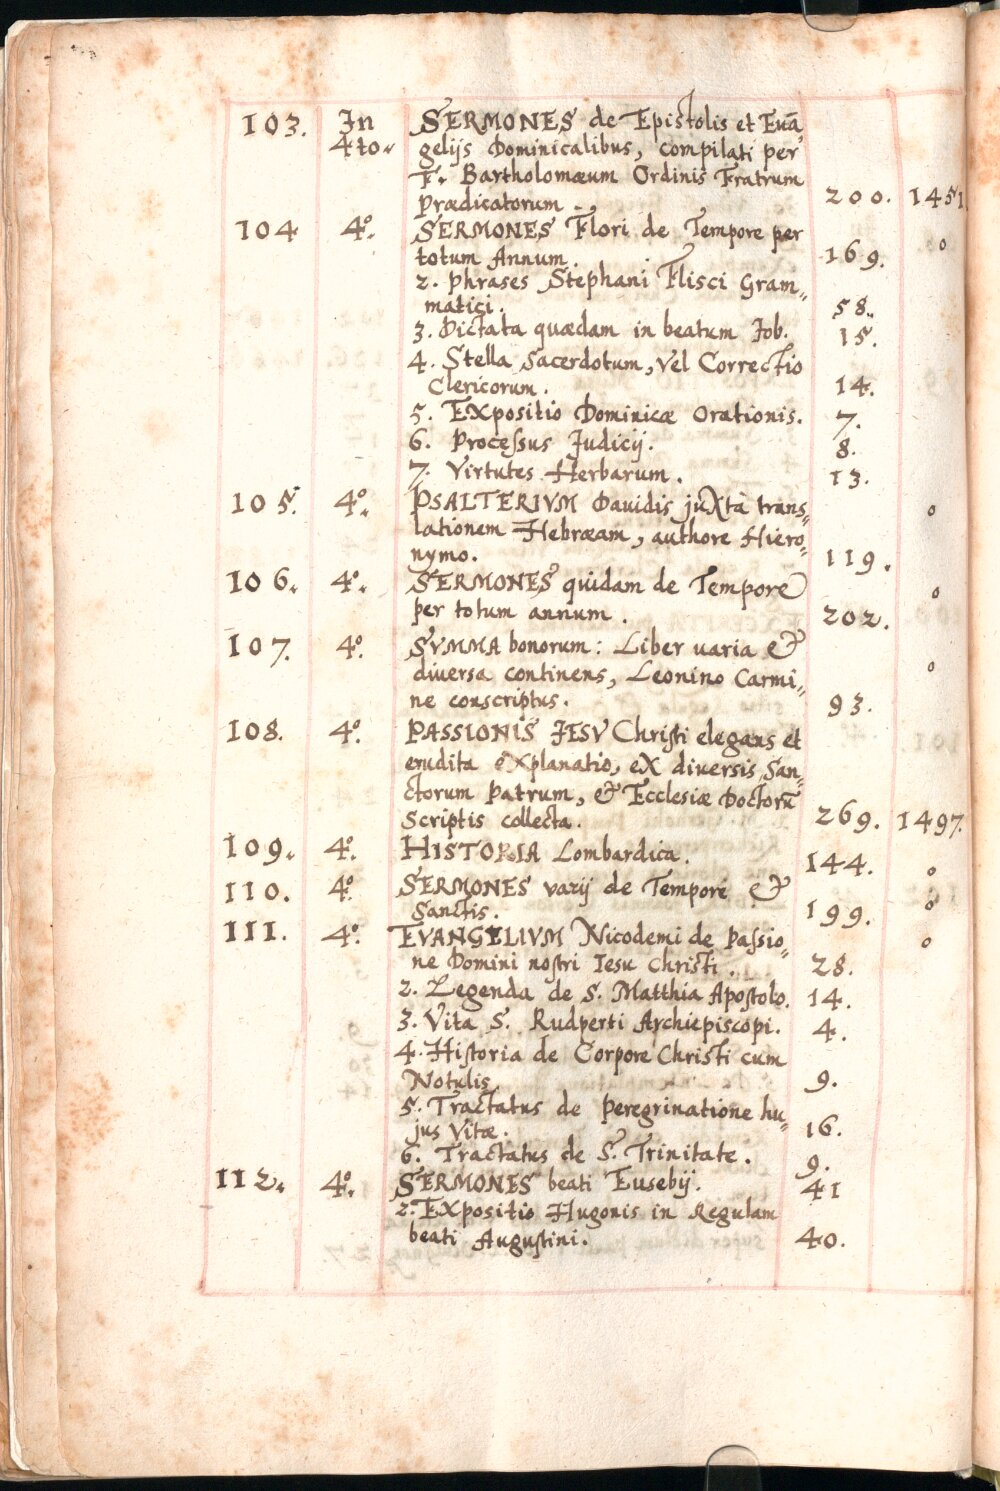 103. In SERMONES de Epistolis et Euā„
4to. gelijs Dominicalibus, compilati per
F. Bartholomæum Ordinis Fratrum
Prædicatorum. 200. 1451
104 4º. SERMONES Flori de Tempore per
totum Annum. 169. o
2. Phrases Stephani Flisci Gram„
matici. 58.
3. Dictata quædam in beatum Job. 15.
4. Stella Sacerdotum, Vel Correctio
Clericorum. 14.
5. Expositio Dominicæ Orationis. 7.
6. Processus Judicij. 8.
7. Virtutes Herbarum. 13.
105. 4º. PSALTERIVM Dauidis juxtà trans„ o
lationem Hebræam, authore Hiero„
nymo. 119.
106. 4º. SERMONES quidam de Tempore o
per totum annum. 202.
107. 4º. SVMMA bonorum: Liber uaria &
diuersa continens, Leonino Carmi„ o
ne conscriptus. 93.
108. 4º. PASSIONIS JESV Christi elegans et
erudita explanatio, ex diuersis San„
ctorum Patrum, & Ecclesiæ Doctorū
Scriptis collecta. 269. 1497.
109. 4º. HISTORIA Lombardica. 144. o
110. 4º. SERMONES varij de Tempore &
Sanctis. 199. o
111. 4º. EVANGELIVM Nicodemi de Passio„ o
ne Domini nostri Iesu Christi. 28.
2. Legenda de S. Matthia Apostolo. 14.
3. Vita S. Rudperti Archiepiscopi. 4.
4. Historia de Corpore Christi cum
Notulis. 9.
5. Tractatus de peregrinatione hu„
jus Vitæ. 16.
6. Tractatus de S. Trinitate. 9.
112. 4º. SERMONES beati Eusebij. 41
2. Expositio Hugonis in Regulam
beati Augustini. 40.